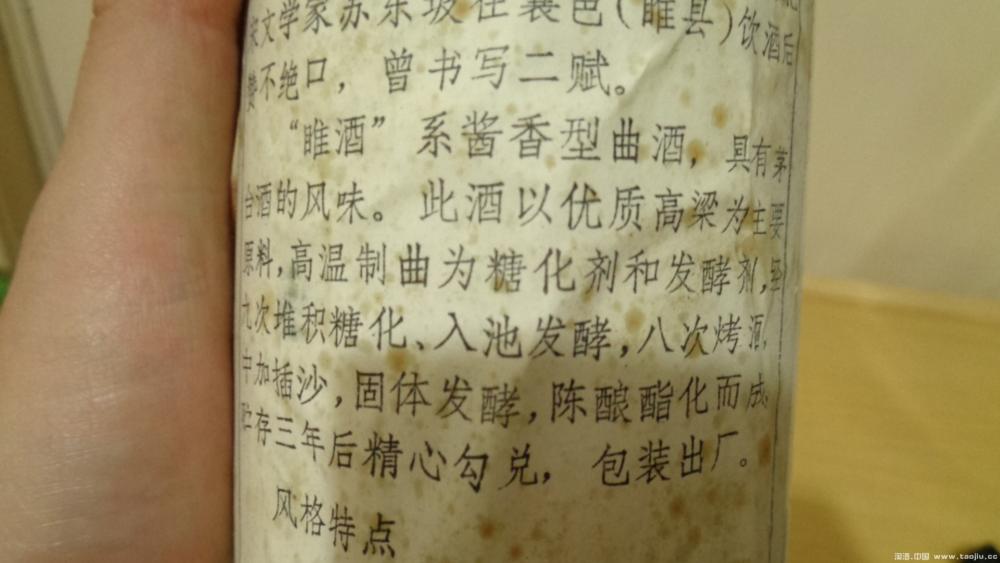 宋文学家苏东坡在襄邑(睢县)饮酒后
赞不绝口，曾书写二赋。
“睢酒”系酱香型曲酒，具有茅
台酒的风味。此酒以优质高梁为主要
原料,高温制曲为糖化剂和发酵剂,经
九次堆积糖化、入池发酵,八次烤酒,
中加插沙,固体发酵,陈酿酯化而成,
贮存三年后精心勾兑，包装出厂。
风格特点
淘酒.中国 www.taojiu.cc